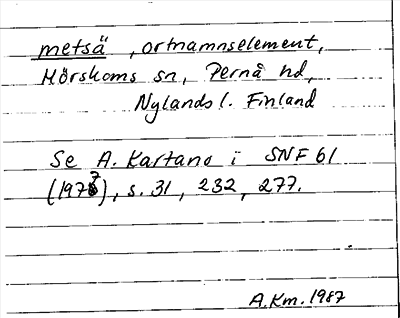 metsä, ortnamnselement,
Mörskoms sn, Pernå hd,
Nylands l. Finland
Se A. Kartano i SNF 61
(1973), s. 31, 232, 277.
A.Km. 1987